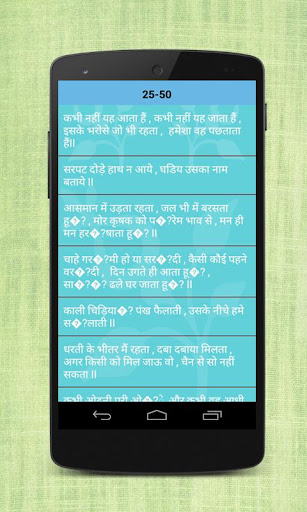 25-50
कभी नहीं यह आता हैं , कभी नहीं यह जाता हैं ,
इसके भरोसे जो भी रहता ,  हमेशा वह पछताता
हैं॥
सरपट दोड़े हाथ न आये , घडिय उसका नाम
बताये ॥
आसमान में उड़ता रहता , जल भी में बरसता
हू�? , मोर कृषक को प�?रेम भाव से , मन ही
मन हर�?षाता हू�? ॥
चाहे गर�?मी हो या सर�?दी , कैसी कोई पहने
वर�?दी ,  दिन उगते ही आता हू�? ,
सा�?�? ढले घर जाता हू�? ॥
काली चिड़िया�? पंख फैलाती , उसके नीचे हमे
स�?लाती ॥
धरती के भीतर मैं रहता , दबा दबाया मिलता ,
अगर किसी को मिल जाऊ वो , चैन से सो नहीं
सकता ॥